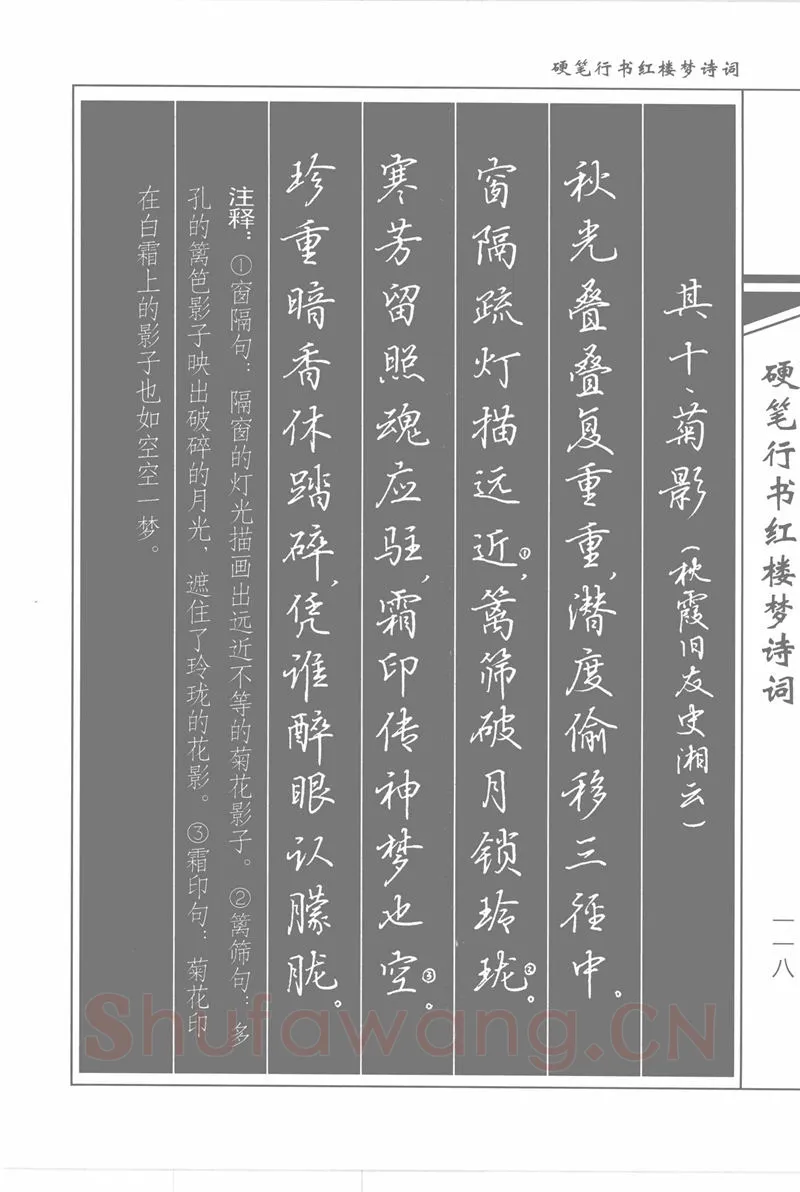 硬笔行书红楼梦诗词
其十、菊影（秋霞旧友史湘云）
秋光叠叠复重重，潜度偷移三径中。
窗隔疏灯描远近①，篱筛破月锁玲珑②。
寒芳留照魂应驻，霜印传神梦也空③。
珍重暗香休踏碎，凭谁醉眼认朦胧。
注释：①窗隔句：隔窗的灯光描画出远近不等的菊花影子。②篱筛句：多
孔的篱笆影子映出破碎的月光，遮住了玲珑的花影。③霜印句：菊花印
在白霜上的影子也如空空一梦。
硬笔行书红楼梦诗词
一一八
Shufawang.CN